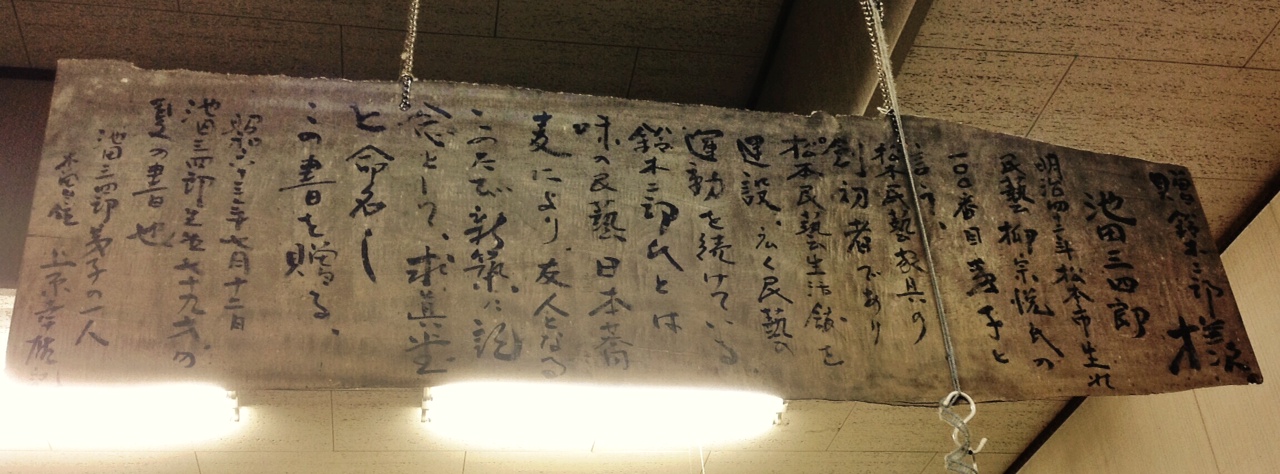 贈鈴木二郎様
池田三四郎
明治四十二年松本市生れ
民藝柳宗悦氏の
一〇〇番目弟子と
言う、
松本民藝家具の
創初者であり
松本民藝生活館を
建設、広く民藝の
運動を続けている
鈴木二郎氏とは
味の民藝日本蕎
麦により、友人となる
この度新築に記
念として、求真堂
と命名し
この書を贈る、
昭和六十三年七月十二日
池田三四郎先生七十九才の
夏の書也
池田三四郎弟子の一人